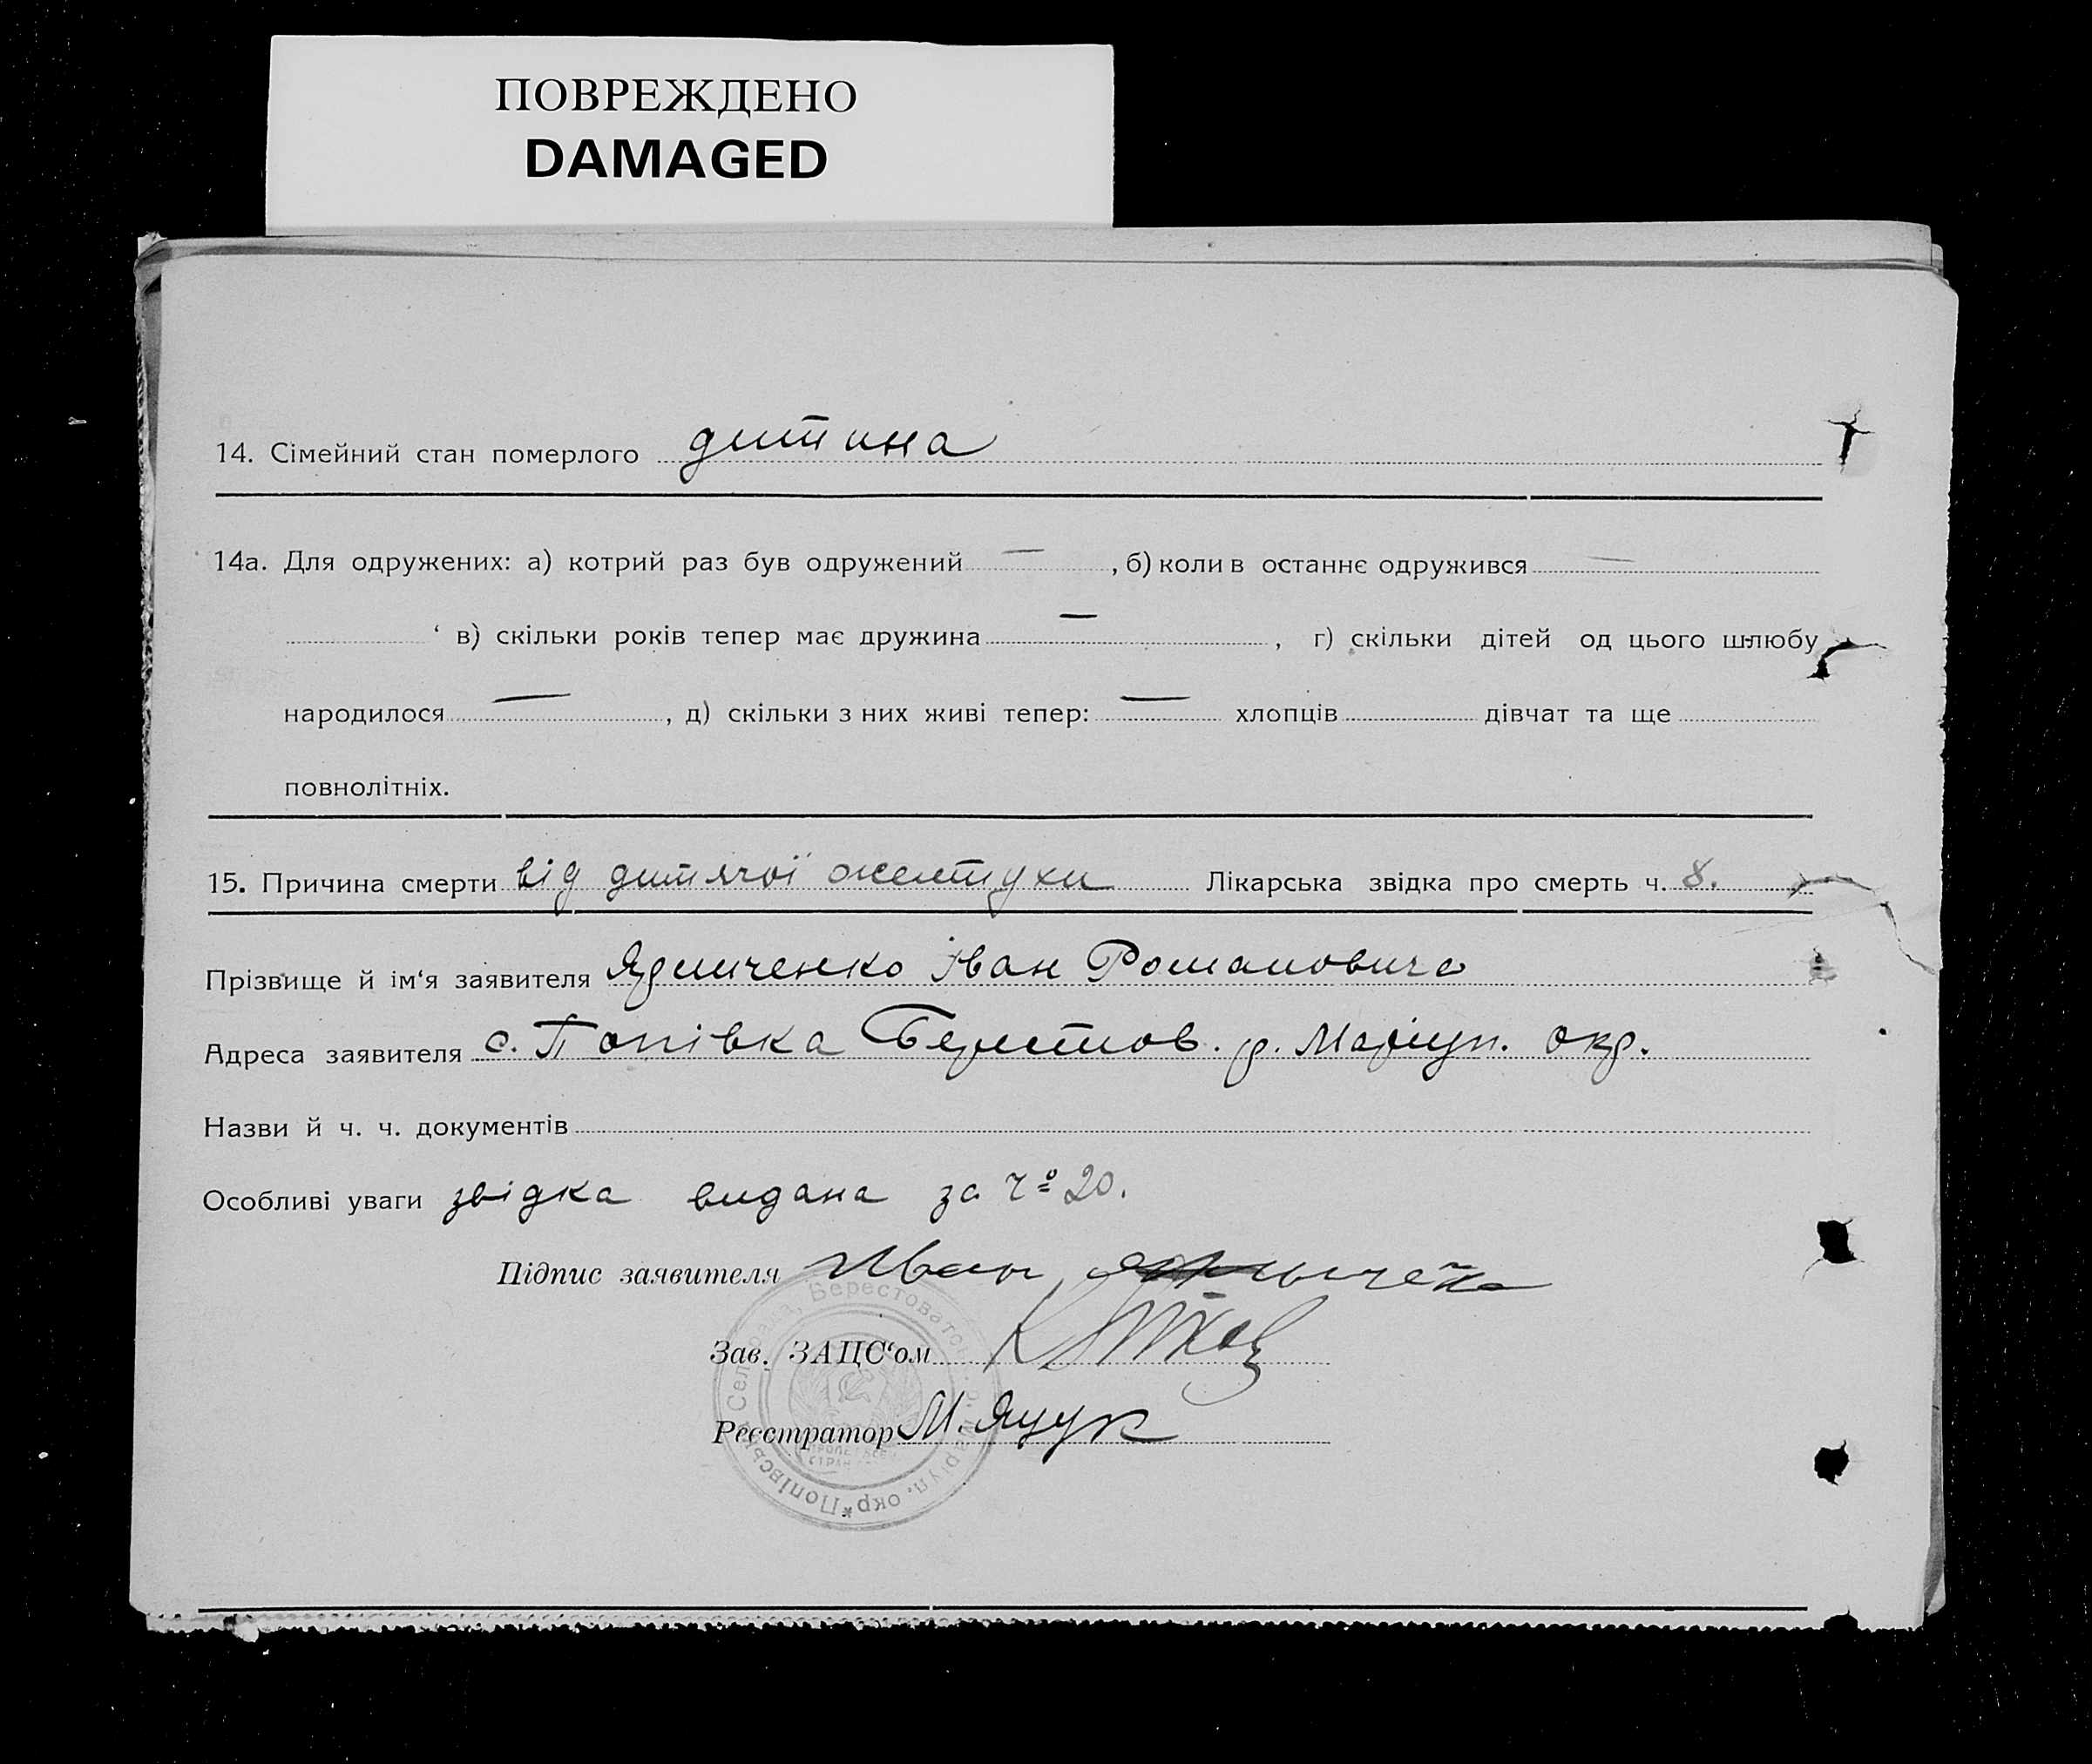 ПОВРЕЖДЕНО
DAMAGED
14. Сімейний стан померлого дитина
14а. Для одружених: а) котрий раз був одружений — , б) коли в останнє одружився —
‘ в) скільки років тепер має дружина — , г) скільки дітей од цього шлюбу
народилося — , д) скільки з них живі тепер: — хлопців дівчат та ще
повнолітніх.
15. Причина смерти від дитячої жентухи Лікарська звідка про смерть ч. 8.
Прізвище й ім‘я заявителя Іван Романовича
Адреса заявителя с. Попівка Берестов. р. Маріуп. окр.
Назви й ч. ч. документів
Особливі уваги звідка видана за ч⁰ 20.
Підпис заявителя Иван
Зав. ЗАЦС‘ом
Реєстратор М. Яцук
*Попівська Сельрада, Берестоватов. Маріуп. окр.